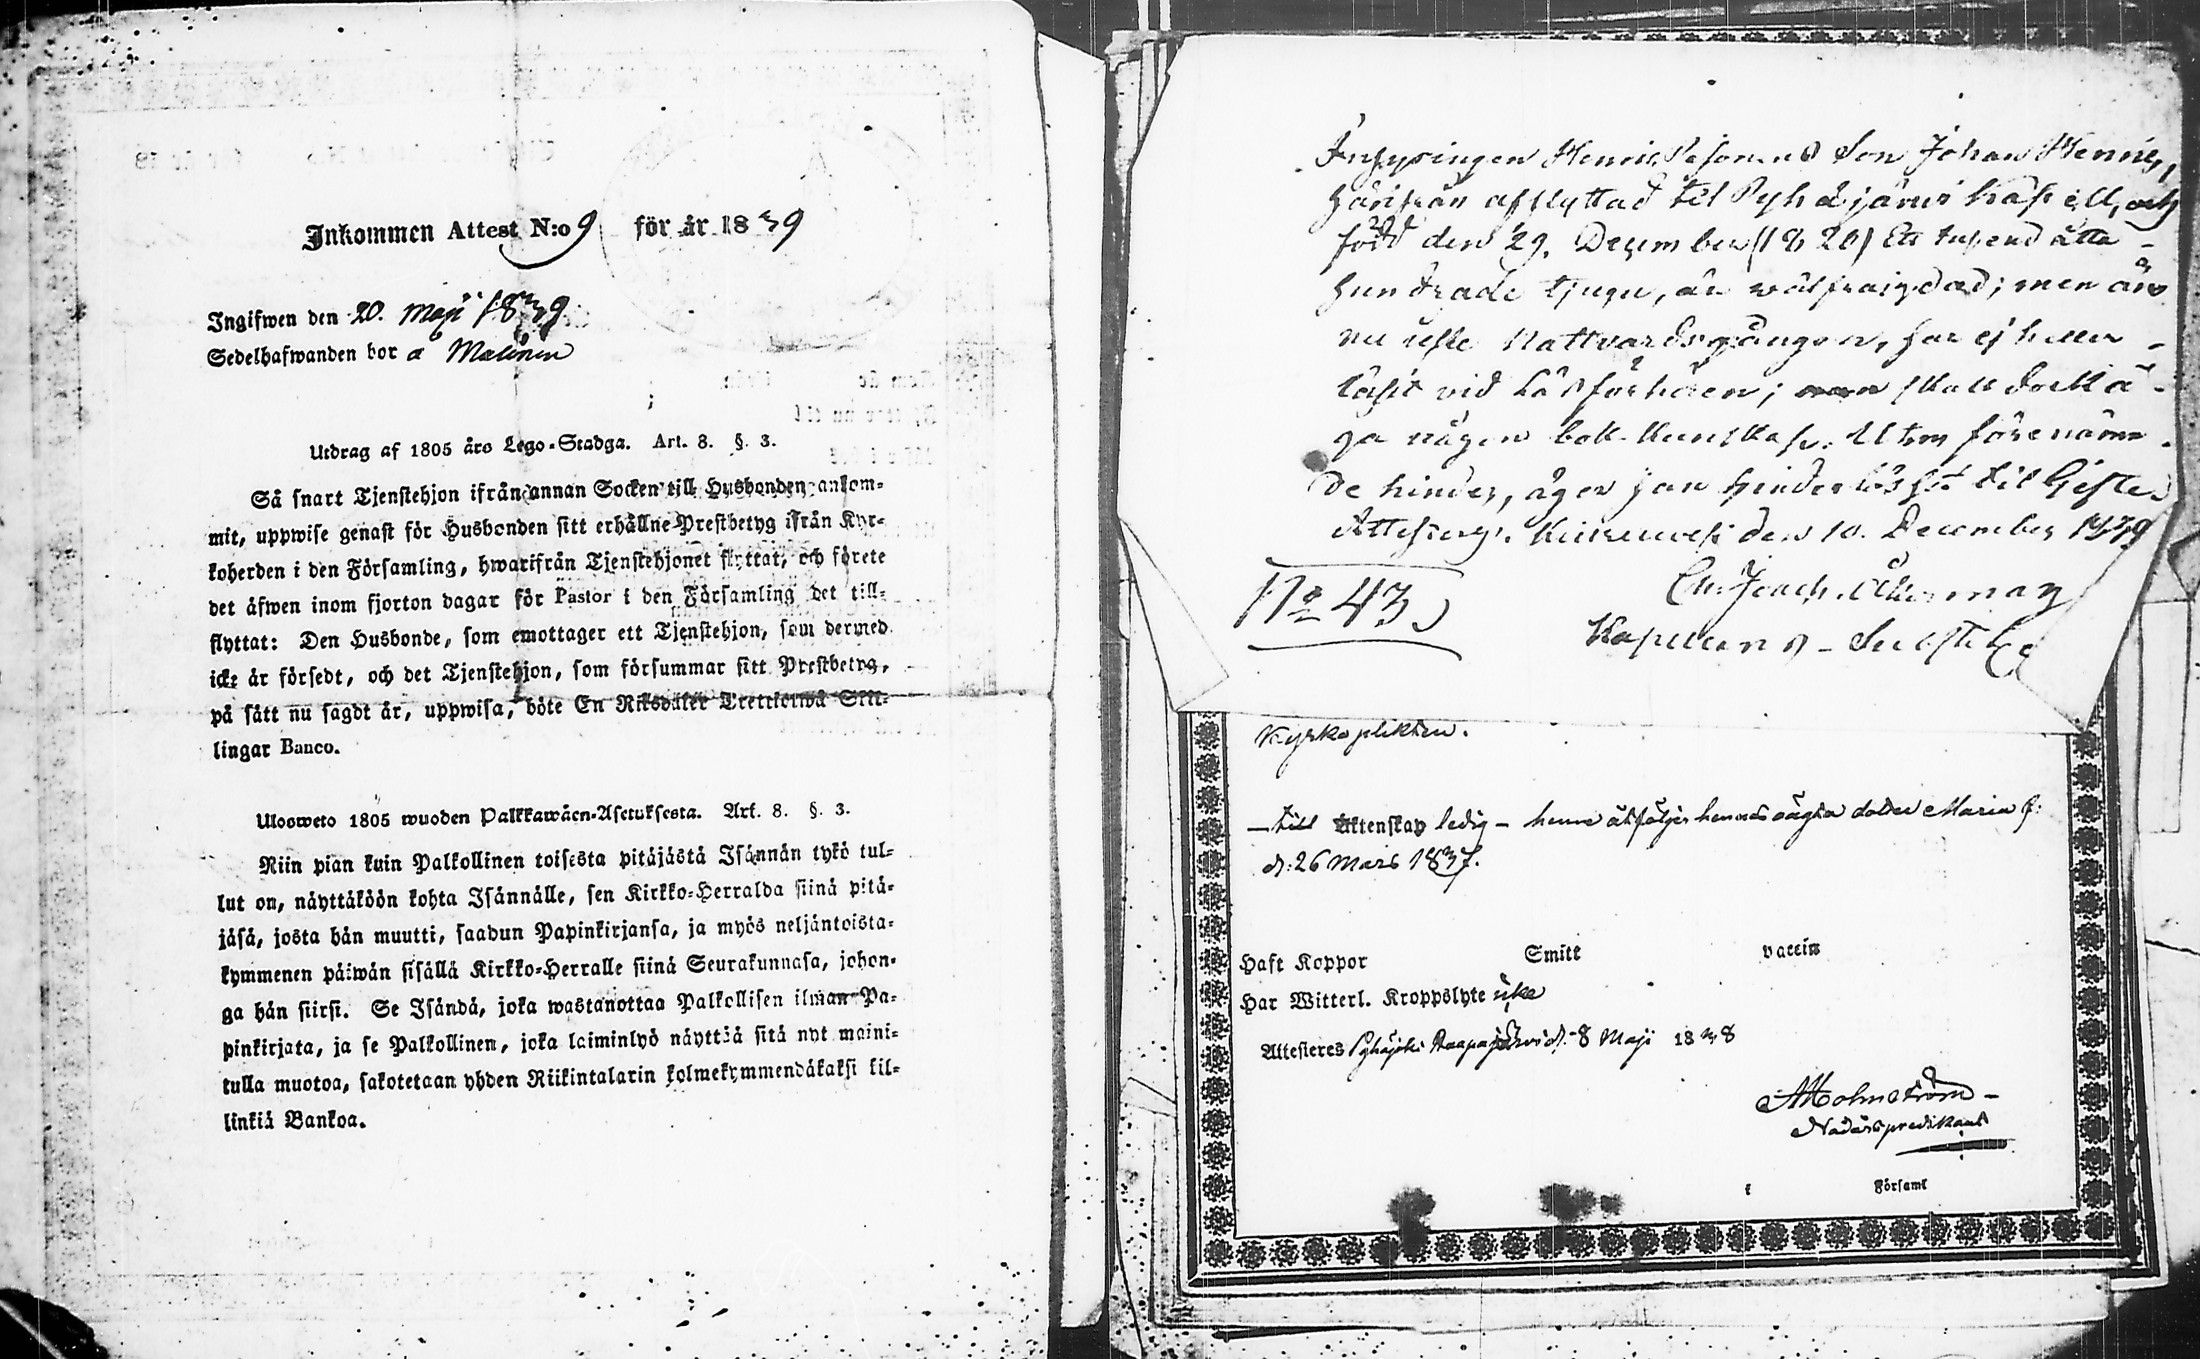 Inkommen Attest N:o 9 för år 1839
Ingifwen den 20. Maji 1839
Sedelhafwanden bor å Matinen
Utdrag af 1805 års Lego-Stadga. Art. 8. §. 3.
Så snart Tjenstehjon ifrån annan Socken till Husbonden ankom-
mit, uppwise genast för Husbonden sitt erhållne Prestbetyg ifrån Kyr-
koherden i den Församling, hwarifrån Tjenstehjonet flyttat, och förete
det äfwen inom fjorton dagar för Pastor i den Församling det till-
flyttat: Den Husbonde, som emottager ett Tjenstehjon, som dermed
icke är försedt, och det Tjenstehjon, som försummar sitt Prestbetyg,
på sätt nu sagdt är, uppwisa, böte En Riksdaler Trettiotwå Skil-
lingar Banco.
Ulosweto 1805 wuoden Palkkawäen-Asetuksesta. Art. 8. §. 3.
Niin pian kuin Palkollinen toisesta pitäjästä Isännän tykö tul-
lut on, näyttäköön kohta Isännälle, sen Kirkko-Herralda siinä pitä-
jäsä, josta hän muutti, saadun Papinkirjansa, ja myös neljäntoista-
kymmenen päiwän sisällä Kirkko-Herralle siinä Seurakunnasa, johon-
ga hän siirsi. Se Isändä, joka wastanottaa Palkollisen ilman Pa-
pinkirjata, ja se Palkollinen, joka laiminlyö näyttää sitä nyt maini-
tulla muotoa, sakotetaan yhden Riikintalarin kolmekymmendäkaksi kil-
linkiä Bankoa.
Inhysingen Henric Pesonens Son Johan Henric,
härifrån afflyttad til Pyhäjärvi Kapell, och
född den 29. December (1820) Ett tusend åtta-
hundrade tjugu, är wälfräigdad; men än
nu utle Nattvardsgången, har ej heller
läsit vid Läsförhören; skall dock ä-
ga någon bok-kunskap. Utom förenämn-
de hinder, äger han hinderlöshet til Gifte.
Attesterar. Kiuruvesi den 10. December 1839
Ch. Joach. Åkerman
Kapellans-Substitut
No 43
Kyrkoplikten.
- till Äktenskap ledig - henne åtföljer hennes oägta dotter Maria f.
d: 26 Mars 1837.
Haft Koppor Smitt vaccin
Har Witterl. Kroppslyte icke
Attesteres Pyhäjoki Haapajärvi d. 8 Maji 1838
A Holmström
Nådårspredikant
i Församl